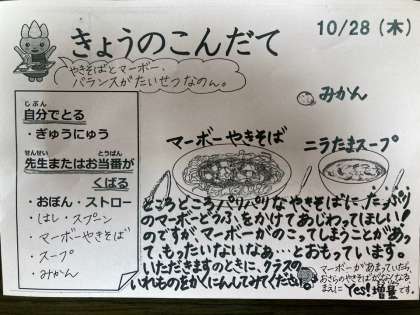 きょうのこんだて
10/28（木）
やきそばとマーボー、
バランスがたいせつなのん。
みかん
自分でとる
じぶん
・ぎゅうにゅう
せんせい とうばん
先生またはお当番が
くばる
・おぼん・ストロー
・はし・スプーン
・マーボーやきそば
・スープ
・みかん
マーボーやきそば
ニラたまスープ
ところどころパリパリなやきそばに、たっぷり
のマーボどうふをかけてあじわってほしい!
のですが、マーボーがのこってしまうことがあっ
て、もったいないなぁ…とおもっています。
いただきますのときに、クラスの
いれものをかくにんしてみてくださ
マーボーがあまっていたら、
おさらのやきそばがなくなる
まえに Yes!増量です。